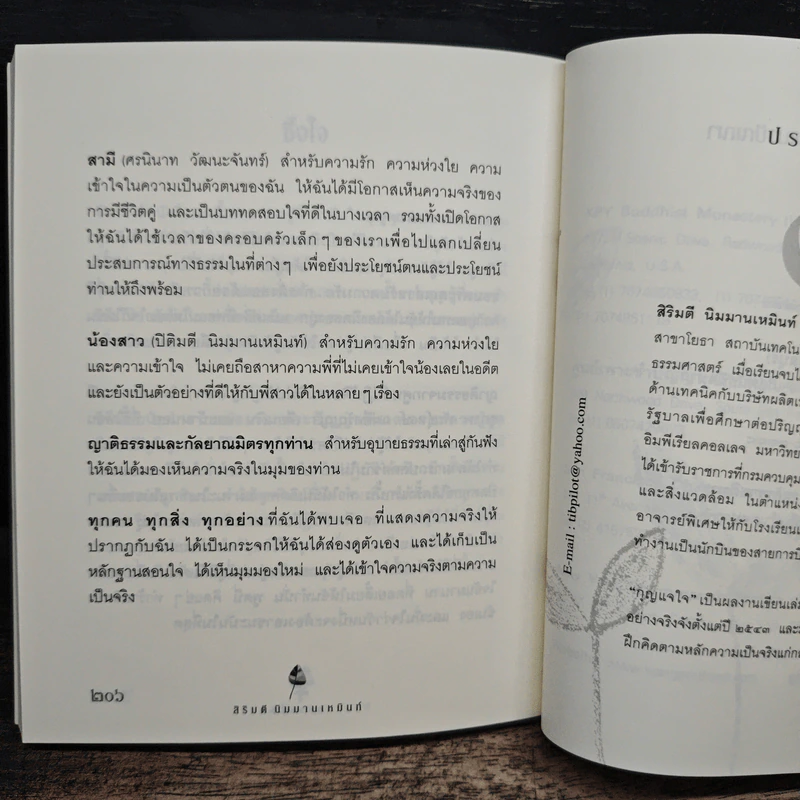 สามี (ศรนินาท วัฒนะจันทร์) สำหรับความรัก ความห่วงใย ความ
เข้าใจในความเป็นตัวตนของฉัน ให้ฉันได้มีโอกาสเห็นความจริงของ
การมีชีวิตคู่ และเป็นบททดสอบใจที่ดีในบางเวลา รวมทั้งเปิดโอกาส
ให้ฉันได้ใช้เวลาของครอบครัวเล็กๆ ของเราเพื่อไปแลกเปลี่ยน
ประสบการณ์ทางธรรมในที่ต่างๆ เพื่อยังประโยชน์ตนและประโยชน์
ท่านให้ถึงพร้อม
น้องสาว (ปิติมตี นิมมานเหมินท์) สำหรับความรัก ความห่วงใย
และความเข้าใจ ไม่เคยถือสาหาความพี่ที่ไม่เคยเข้าใจน้องเลยในอดีต
และยังเป็นตัวอย่างที่ดีให้กับพี่สาวได้ในหลายๆ เรื่อง
ญาติธรรมและกัลยาณมิตรทุกท่าน สำหรับอุบายธรรมที่เล่าสู่กันฟัง
ให้ฉันได้มองเห็นความจริงในมุมของท่าน
ทุกคน ทุกสิ่ง ทุกอย่าง ที่ฉันได้พบเจอ ที่แสดงความจริงให้
ปรากฏกับฉัน ได้เป็นกระจกให้ฉันได้ส่องดูตัวเอง และได้เก็บเป็น
หลักฐานสอนใจ ได้เห็นมุมมองใหม่ และได้เข้าใจความจริงตามความ
เป็นจริง
๒๐๖
สิริมตี นิมมานเหมินท์
ปร
E-mail : tibpilot@yahoo.com
สิริมตี นิมมานเหมินท์
สาขาโยธา สถาบันเทคโน
ธรรมศาสตร์ เมื่อเรียนจบไ
ด้านเทคนิคกับบริษัทผลิต
รัฐบาลเพื่อศึกษาต่อปริญ
อิมพีเรียลคอลเลจ มหาวิทย
ได้เข้ารับราชการที่กรมควบคุม
และสิ่งแวดล้อม ในตำแหน่ง
อาจารย์พิเศษให้กับโรงเรียน
ทำงานเป็นนักบินของสายการบิ
“กุญแจใจ” เป็นผลงานเขียนเล่ม
อย่างจริงจังตั้งแต่ปี ๒๕๔๓ และ
ฝึกคิดตามหลักความเป็นจริงแก่